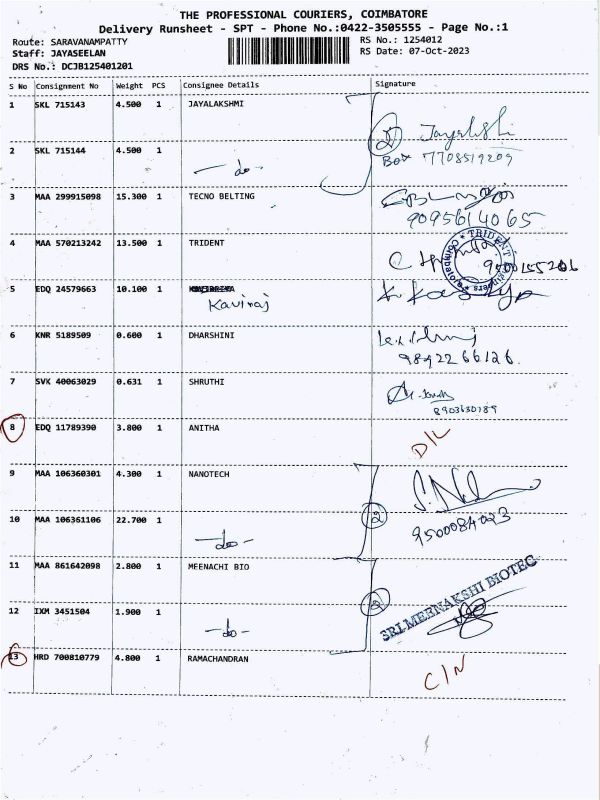 THE PROFESSIONAL COURIERS, COIMBATORE
Delivery Runsheet - SPT - Phone No.:0422-3505555 - Page No.:1
Route: SARAVANAMPATTY
Staff: JAYASEELAN
DRS No.: DCJB125401201
RS No.: 1254012
RS Date: 07-Oct-2023
S No Consignment No Weight PCS Consignee Details Signature
1 SKL 715143 4.500 1 JAYALAKSHMI
2 SKL 715144 4.500 1 -do-
Box 7708519209
3 MAA 299915098 15.300 1 TECNO BELTING
9095614065
4 MAA 570213242 13.500 1 TRIDENT
TRIDENT
5 EDQ 24579663 10.100 1
Kaviraj
6 KNR 5189509 0.600 1 DHARSHINI
9842266126.
7 SVK 40063029 0.631 1 SHRUTHI
8903630189
8 EDQ 11789390 3.800 1 ANITHA D/L
9 MAA 106360301 4.300 1 NANOTECH
10 MAA 106361106 22.700 1 -do- 2
9500084023
11 MAA 861642098 2.800 1 MEENACHI BIO
SRI MEENAKSHI BIOTEC
12 IXM 3451504 1.900 1 -do- 2
13 HRD 700810779 4.800 1 RAMACHANDRAN C/N